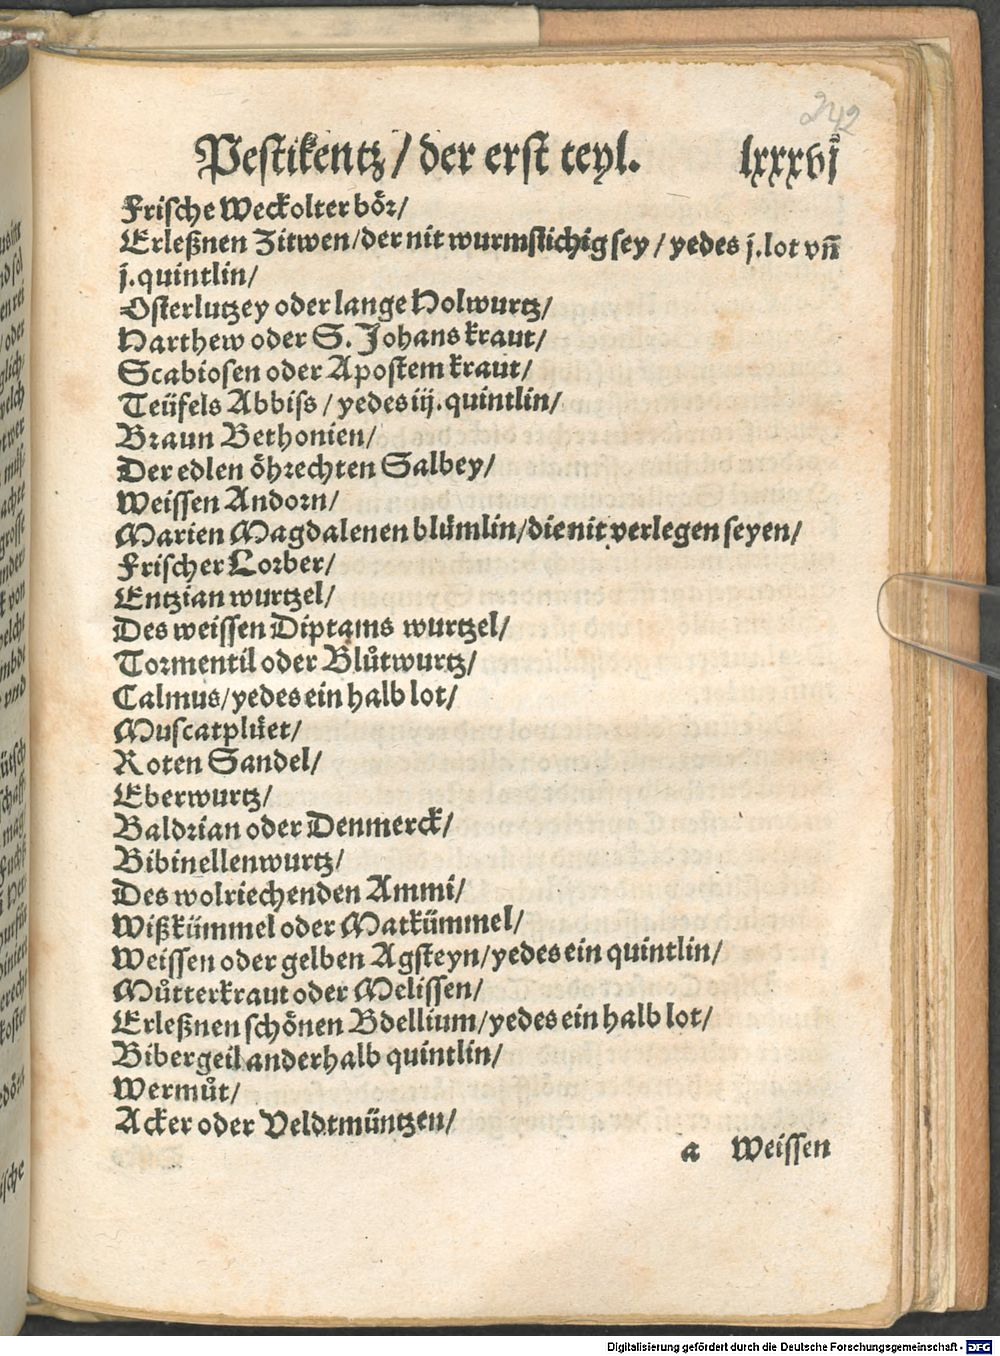 242
Pestilentz / der erst teyl. lxxxvij
Frische Weckolter bör/
Erleßnen Zitwen/der nit wurmstichig sey / yedes j.lot vñ
j.quintlin/
Osterlutzey oder lange Holwurtz/
Harthew oder S. Johans kraut/
Scabiosen oder Apostem kraut/
Teüfels Abbiss / yedes iij.quintlin/
Braun Bethonien/
Der edlen öhrechten Salbey/
Weissen Andorn/
Marien Magdalenen blümlin/die nit verlegen seyen/
Frischer Lorber/
Entzian wurtzel/
Des weissen Diptams wurtzel/
Tormentil oder Blůtwurtz/
Calmus/yedes ein halb lot/
Muscatplüet/
Roten Sandel/
Eberwurtz/
Baldrian oder Denmerck/
Bibinellenwurtz/
Des wolriechenden Ammi/
Wißkümmel oder Matkümmel/
Weissen oder gelben Agsteyn/yedes ein quintlin/
Můtterkraut oder Melissen/
Erleßnen schönen Bdellium/yedes ein halb lot/
Bibergeil anderhalb quintlin/
Wermůt/
Acker oder Veldtmüntzen/
a Weissen
Digitalisierung gefördert durch die Deutsche Forschungsgemeinschaft - DFG